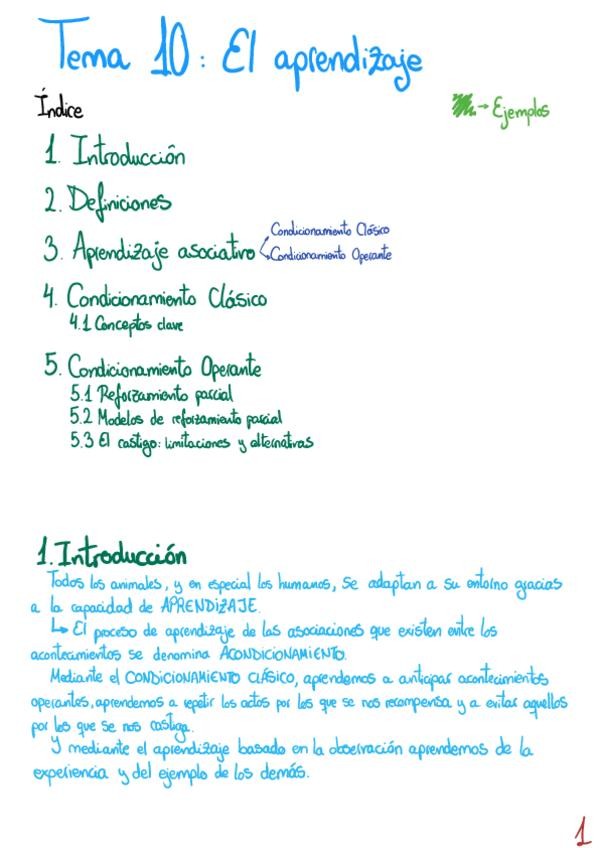 Tema 10: El aprendizaje
Índice
→ Ejemplos
1. Introducción
2. Definiciones
3. Aprendizaje asociativo
Condicionamiento Clásico
Condicionamiento Operante
4. Condicionamiento Clásico
4.1 Conceptos clave
5. Condicionamiento Operante
5.1 Reforzamiento parcial
5.2 Modelos de reforzamiento parcial
5.3 El castigo: limitaciones y alternativas
1. Introducción
Todos los animales, y en especial los humanos, se adaptan a su entorno gracias
a la capacidad de APRENDIZAJE.
↳ El proceso de aprendizaje de las asociaciones que existen entre los
acontecimientos se denomina ACONDICIONAMIENTO.
Mediante el CONDICIONAMIENTO CLÁSICO, aprendemos a anticipar acontecimientos
operantes, aprendemos a repetir los actos por los que se nos recompensa y a evitar aquellos
por los que se nos castiga.
Y mediante el aprendizaje basado en la observación aprendemos de la
experiencia y del ejemplo de los demás.
1